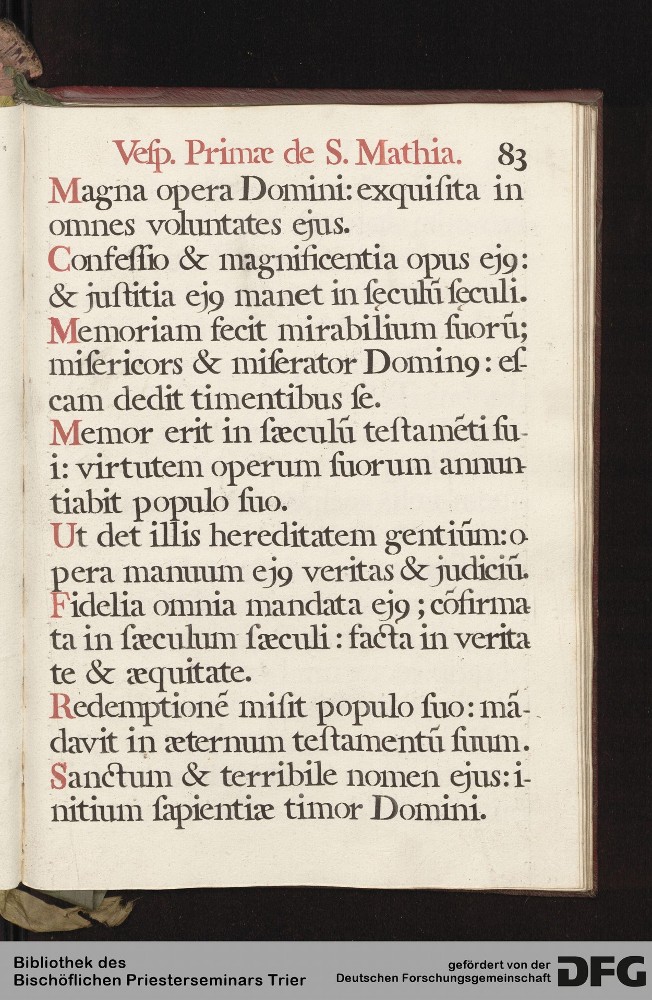 Veſp. Primæ de S. Mathia. 83
Magna opera Domini: exquiſita in
omnes voluntates ejus.
Confeſſio & magnificentia opus ejꝰ:
& juſtitia ejꝰ manet in ſęculũ ſęculi.
Memoriam fecit mirabilium ſuorũ;
miſericors & miſerator Dominꝰ: eſ-
cam dedit timentibus ſe.
Memor erit in ſæculũ teſtamẽti ſu-
i: virtutem operum ſuorum annun-
tiabit populo ſuo.
Ut det illis hereditatem gentiũm: o-
pera manuum ejꝰ veritas & judiciũ.
Fidelia omnia mandata ejꝰ; cõfirma-
ta in ſæculum ſæculi: facta in verita
te & æquitate.
Redemptionẽ miſit populo ſuo: mã-
davit in æternum teſtamentũ ſuum.
Sanctum & terribile nomen ejus: i-
nitium ſapientiæ timor Domini.
Bibliothek des
Bischöflichen Priesterseminars Trier
gefördert von der
Deutschen Forschungsgemeinschaft
DFG